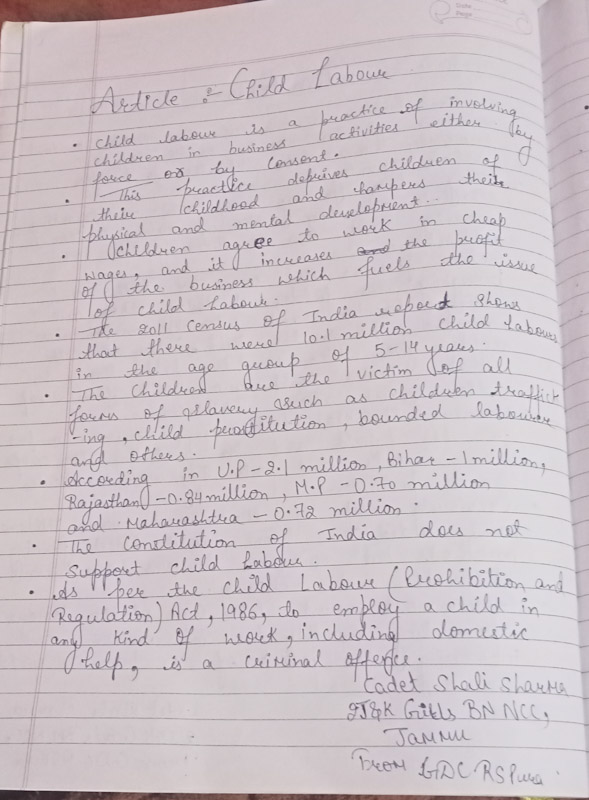 Date
Page
Article :- Child Labour
• Child labour is a practice of involving
children in business activities either by
force or by consent.
• This practice deprives children of
their childhood and hampers their
physical and mental development.
• Children agree to work in cheap
wages, and it increases the profit
of the business which fuels the issue
of child labour.
• The 2011 Census of India report shows
that there were 10.1 million child labour
in the age group of 5-14 years.
• The children are the victim of all
forms of slavery such as children traffick
-ing, child prostitution, bounded labour
and others.
• According in U.P - 2.1 million, Bihar - 1 million,
Rajasthan - 0.84 million, M.P - 0.70 million
and Maharashtra - 0.72 million.
• The Constitution of India does not
support child labour.
• As per the Child Labour (Prohibition and
Regulation) Act, 1986, to employ a child in
any kind of work, including domestic
help, is a criminal offence.
Cadet Shali Sharma
2J&K Girls BN NCC,
Jammu
From GDC RSPura.